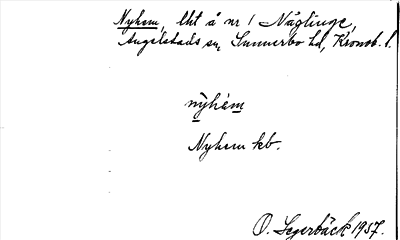 Nyhem, lht å nr 1 Näglinge,
Angelstads sn, Sunnerbo hd, Kronob. l.
nỳhèm
Nyhem kb.
O. Segerbäck 1957.